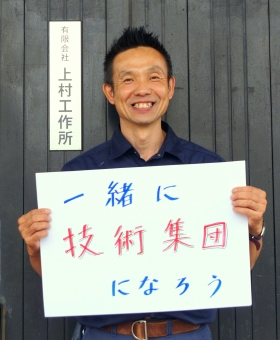 有限会社 上村工作所
一緒に
技術集団
になろう